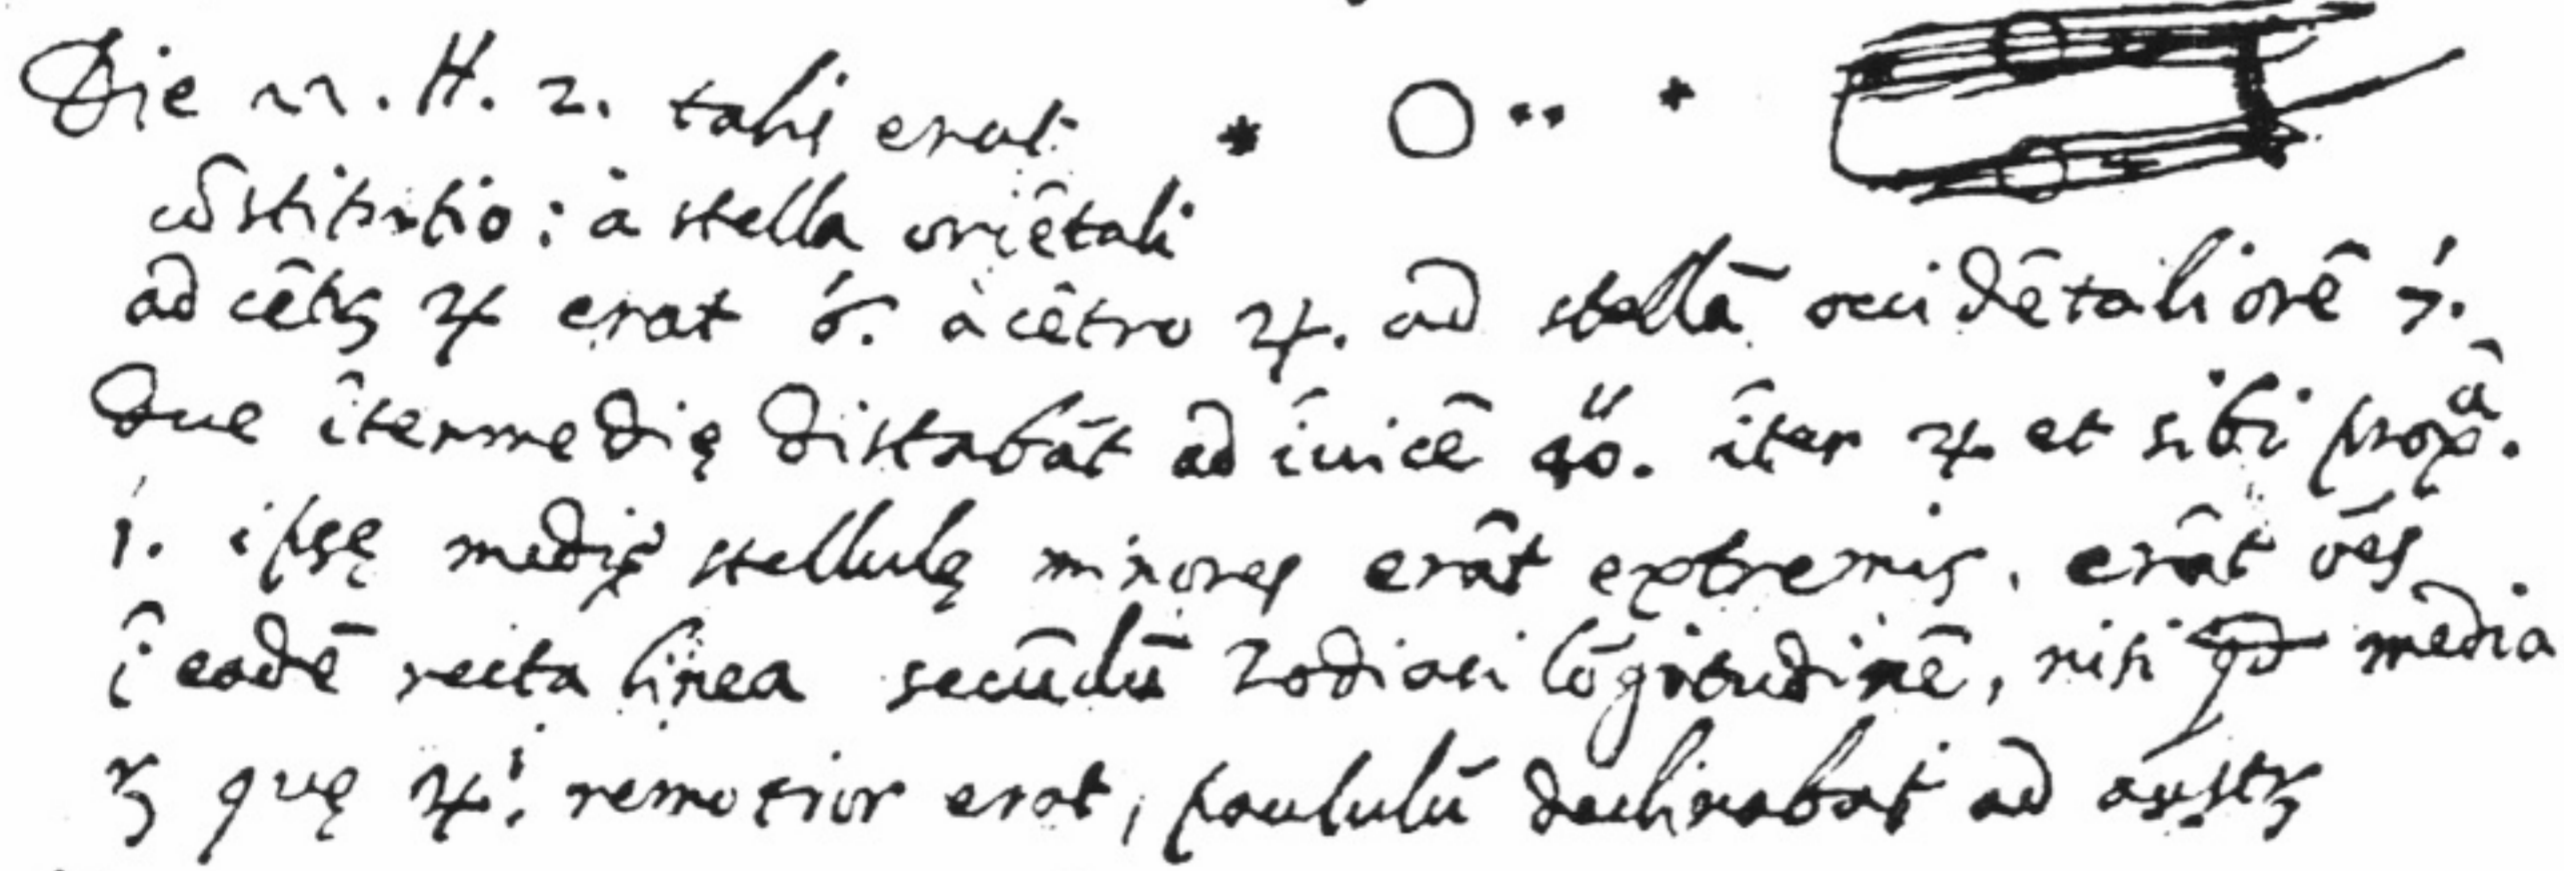 Die 11. H. 2. talis erat
cōstitutio: à stella oriētali
ad cētrꝫ ♃ erat 6́. à cētro ♃. ad stellā occidētaliorē 7́.
Due îtermedię distabāt ad îuicē 40̋. îter ♃ et sibi propꝰ.
1́. ipsę medię stellulę minores erāt extremis. erāt ōēs
î eadē recta linea secūdū zodiaci lōgitudinē, nisi qđ media
rꝫ quę ♃i. remotior erat, paululū declinabat ad austrꝫ